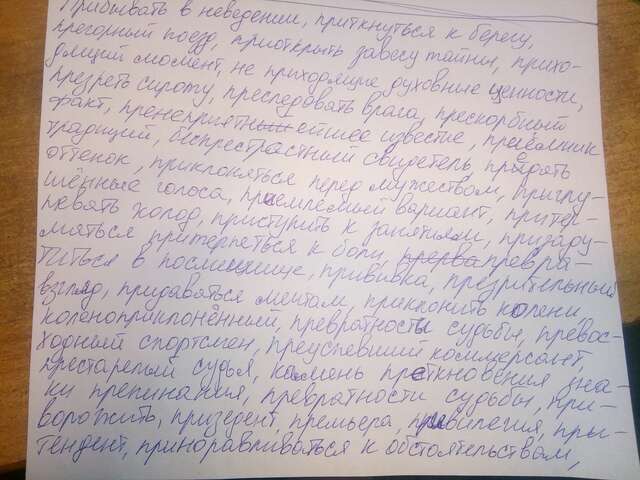 Прибывать в неведении, приткнуться к берегу,
пригорный поезд, приоткрыть завесу тайны, прихо-
дящий момент, не приходящие духовные ценности,
презреть сироту, преследовать врага, прескорбный
факт, пренеприятнейшее известие, преемник
традиций, беспрестрастный свидетель, придать
оттенок, приклоняться перед мужеством, приглу-
шённые голоса, приемлемый вариант, притер-
певать холод, приступить к занятиям, придару-
мяться притерпеться к боли, превра-
титься в посмешище, прививка, презрительный
взгляд, придаваться мечтам, приклонить колени
коленоприклонённый, превратности судьбы, превос-
ходный спортсмен, преуспевший коммерсант,
престарелый судья, камень преткновения, зна-
ки препинания, превратности судьбы, при-
ворожить, призедент, премьера, привилегия, пры-
тендент, приноравливаться к обстоятельствам,